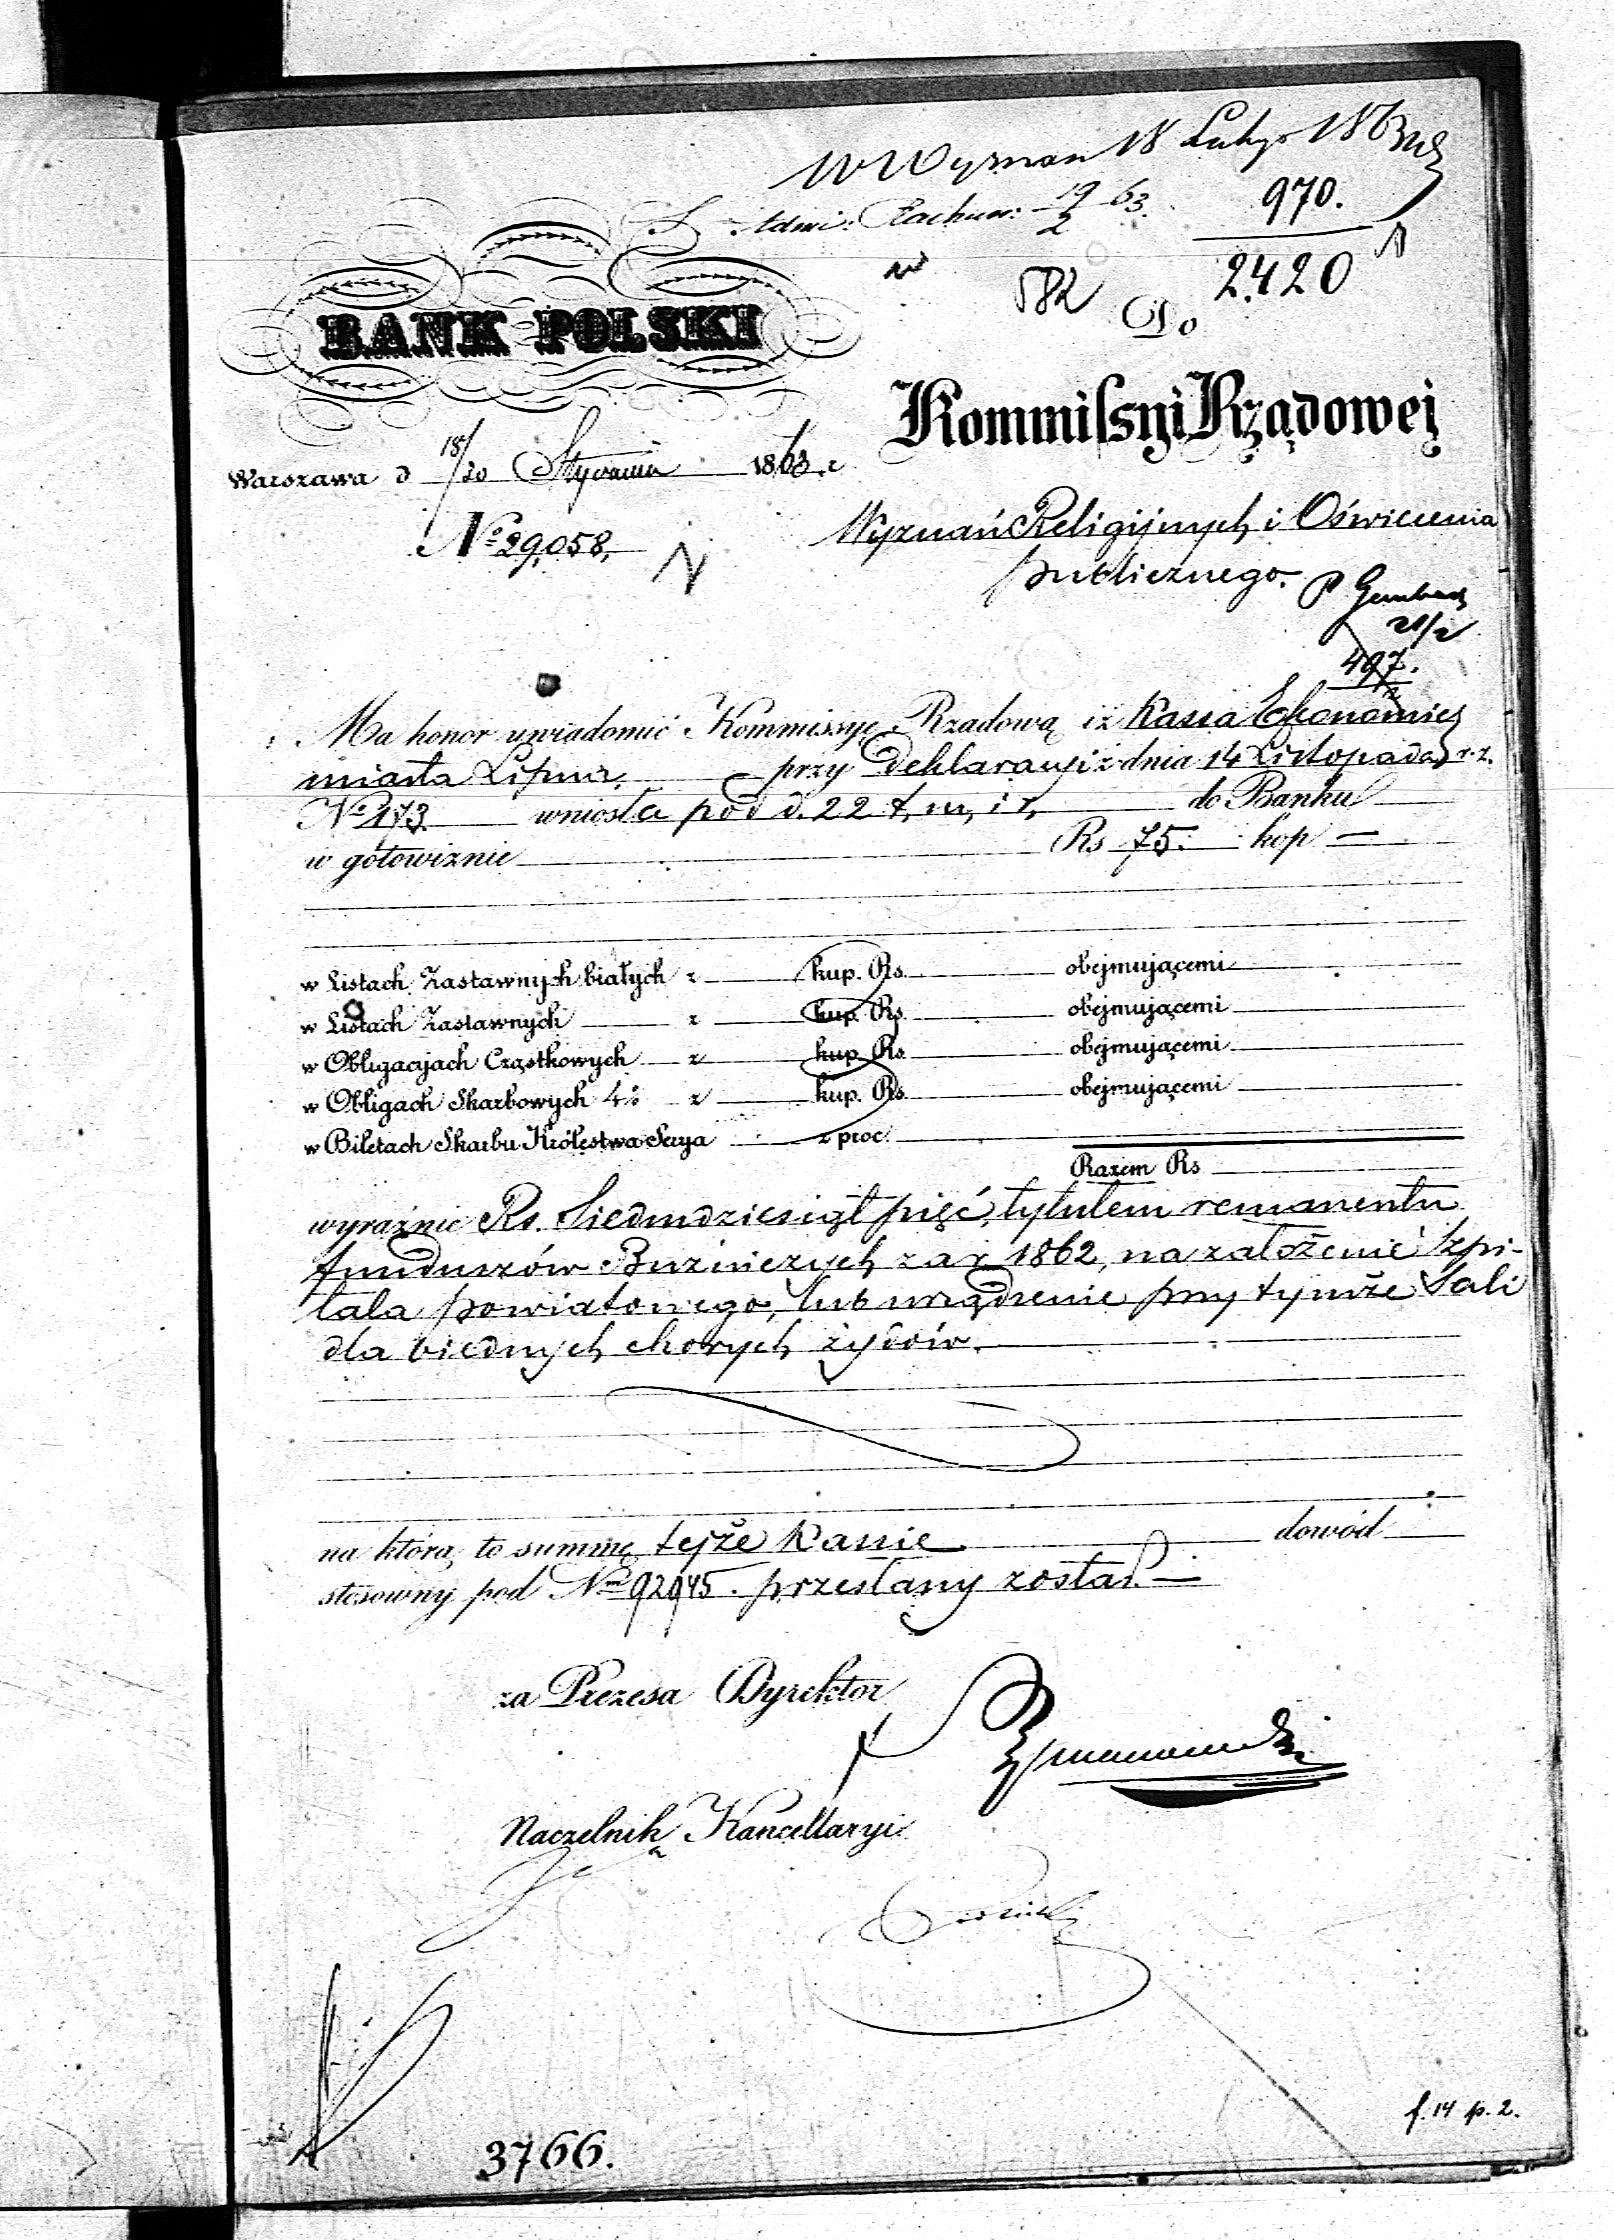 W Wyznań 18 Lutego 1863
Rachun: 19/2 63.
970.
2420
582
Do
BANK POLSKI
Kommissyi Rządowej
Warszawa d 18/30 Stycznia 1863 r.
Wyznań Religijnych i Oświecenia
No 29,058.
publicznego.
21/2
497.
Ma honor uwiadomić Kommissyę Rządową iż Kassa Ekonomicz
miasta Lipna, przy deklaracyi z dnia 14 Listopada r. z.
No 173 wniosła pod d. 22 t. m. i r. do Banku
w gotowiznie Rs 75. kop —
w Listach Zastawnych białych z kup. Rs. obejmującemi
w Listach Zastawnych z kup. Rs. obejmującemi
w Obligacyjach Cząstkowych z kup. Rs. obejmującemi
w Obligach Skarbowych 4% z kup. Rs. obejmującemi
w Biletach Skarbu Królestwa Serya z proc.
Razem Rs
wyraźnie Rs. Siedmdziesiąt pięć, tytułem remanentu
funduszów Bużniczych za r. 1862, na założenie Szpi-
tala powiatowego, lub urządzenie przy tymże Sali
dla biednych chorych żydów.
na którą to summę tejże Kassie dowód
stosowny pod Nm 92945. przesłany został. —
za Prezesa Dyrektor
Naczelnik Kancellaryi
f. 14 p. 2.
3766.